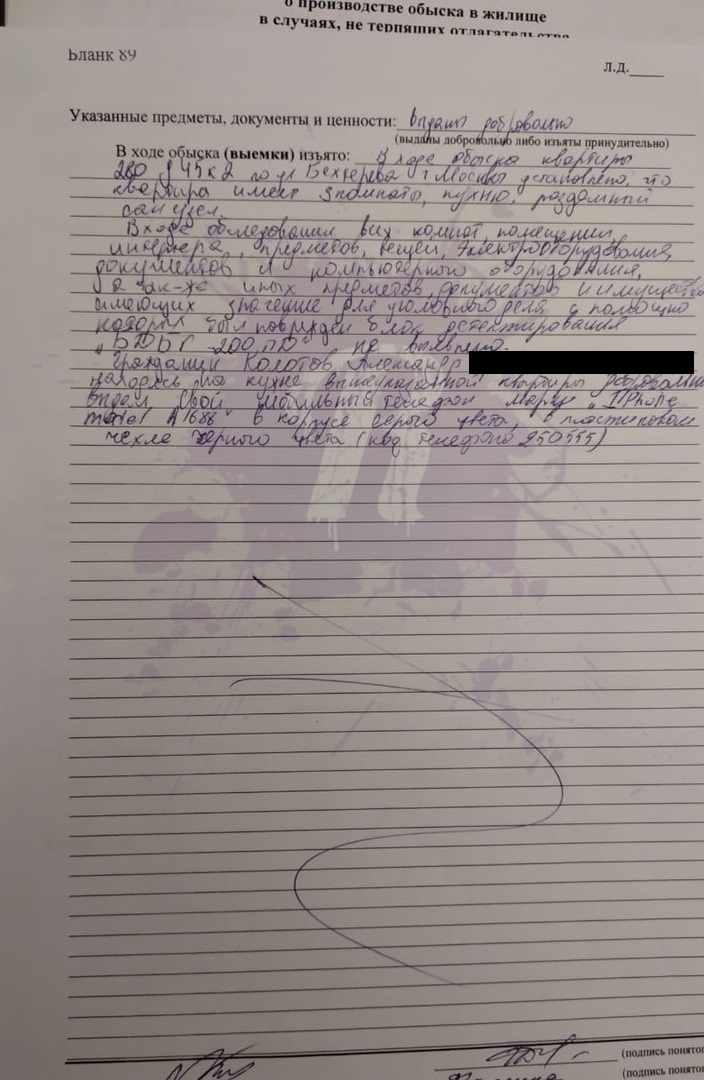 о производстве обыска в жилище
в случаях, не терпящих отлагательства
Бланк 89
Л.Д.
Указанные предметы, документы и ценности: выданы добровольно
(выданы добровольно либо изъяты принудительно)
В ходе обыска (выемки) изъято: В ходе обыска квартиры
280 д 45 к 2 по ул Бехтерева г Москвы установлено, что
квартира имеет 3 комнаты, кухню, раздельный
сан узел.
В ходе обследования всех комнат, помещений,
интерьера, предметов, вещей, электрооборудования,
документов и компьютерного оборудования,
а так-же иных предметов, документов и имущества
имеющих значение для уголовного дела, с помощью
которых был поврежден блок детектирования
"БДБГ-200 не выявлено.
Гражданин Колотов Александр
находясь на кухне вышеуказанной квартиры добровольно
выдал свой мобильный телефон марки "IPhone
model A1688" в корпусе серого цвета, в пластиковом
чехле черного цвета (код телефона 250555)
(подпись понятог
(подпись понятог